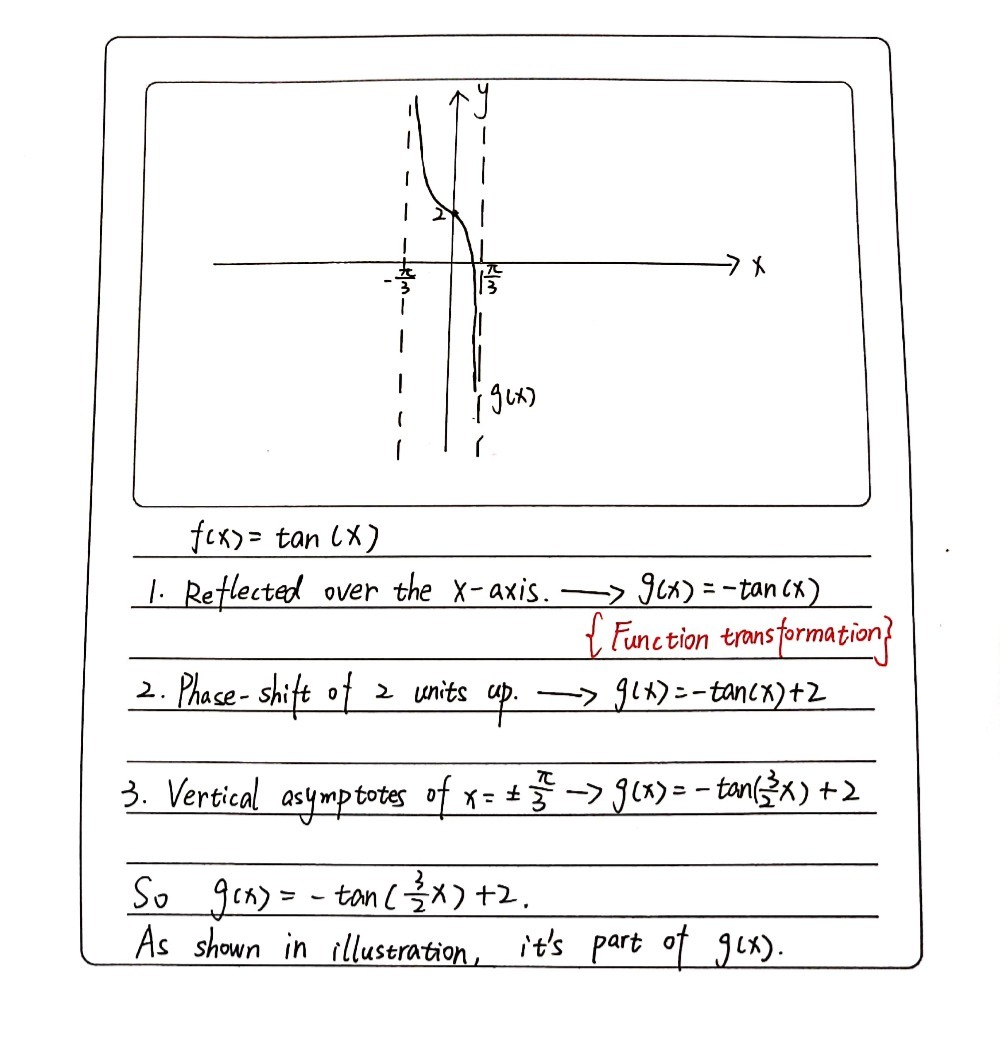 y
2
x
-π/3
π/3
g(x)
f(x) = tan (x)
1. Reflected over the x-axis. → g(x) = -tan(x)
{Function transformation}
2. Phase-shift of 2 units up. → g(x) = -tan(x)+2
3. Vertical asymptotes of x = ± π/3 → g(x) = - tan(3/2x) + 2
So g(x) = - tan(3/2x) +2.
As shown in illustration, it's part of g(x).